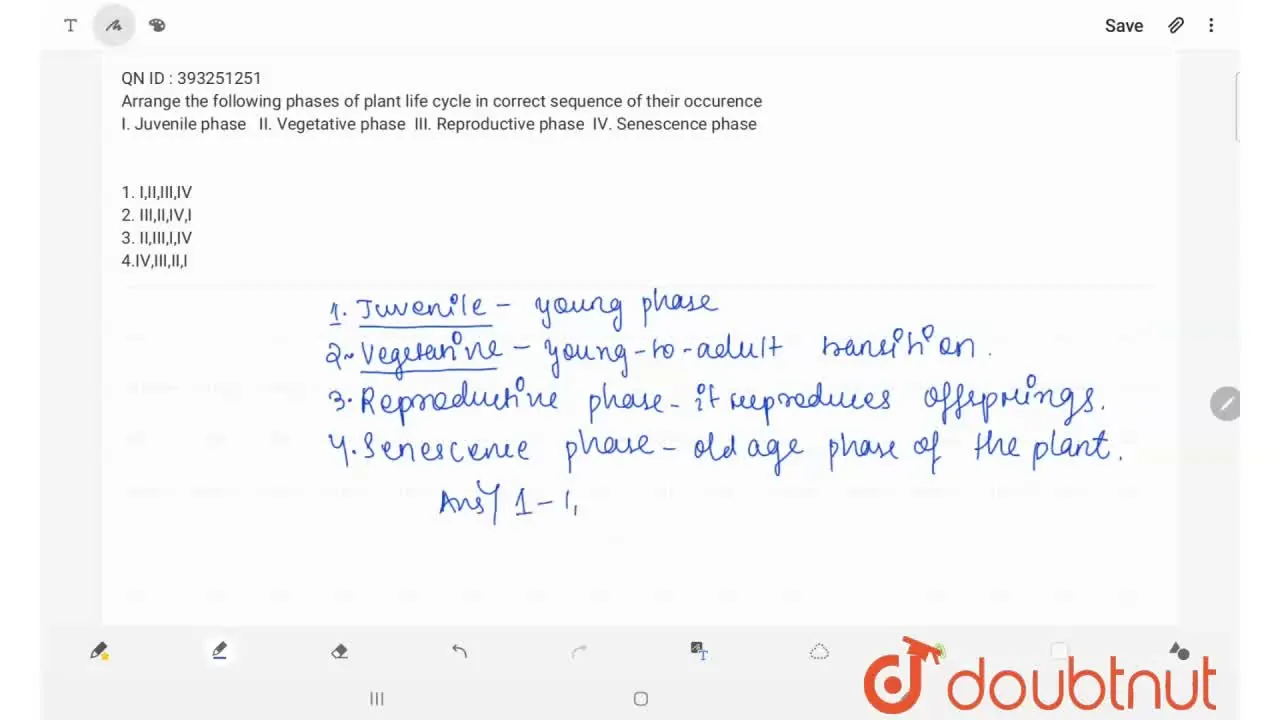 T
Save
QN ID : 393251251
Arrange the following phases of plant life cycle in correct sequence of their occurence
I. Juvenile phase II. Vegetative phase III. Reproductive phase IV. Senescence phase
1. I,II,III,IV
2. III,II,IV,I
3. II,III,I,IV
4.IV,III,II,I
1. Juvenile - young phase
2. Vegetative - young-to-adult transition.
3. Reproductive phase - it reproduces offsprings.
4. Senescence phase - old age phase of the plant.
Ans/ 1 - I,
T
doubtnut